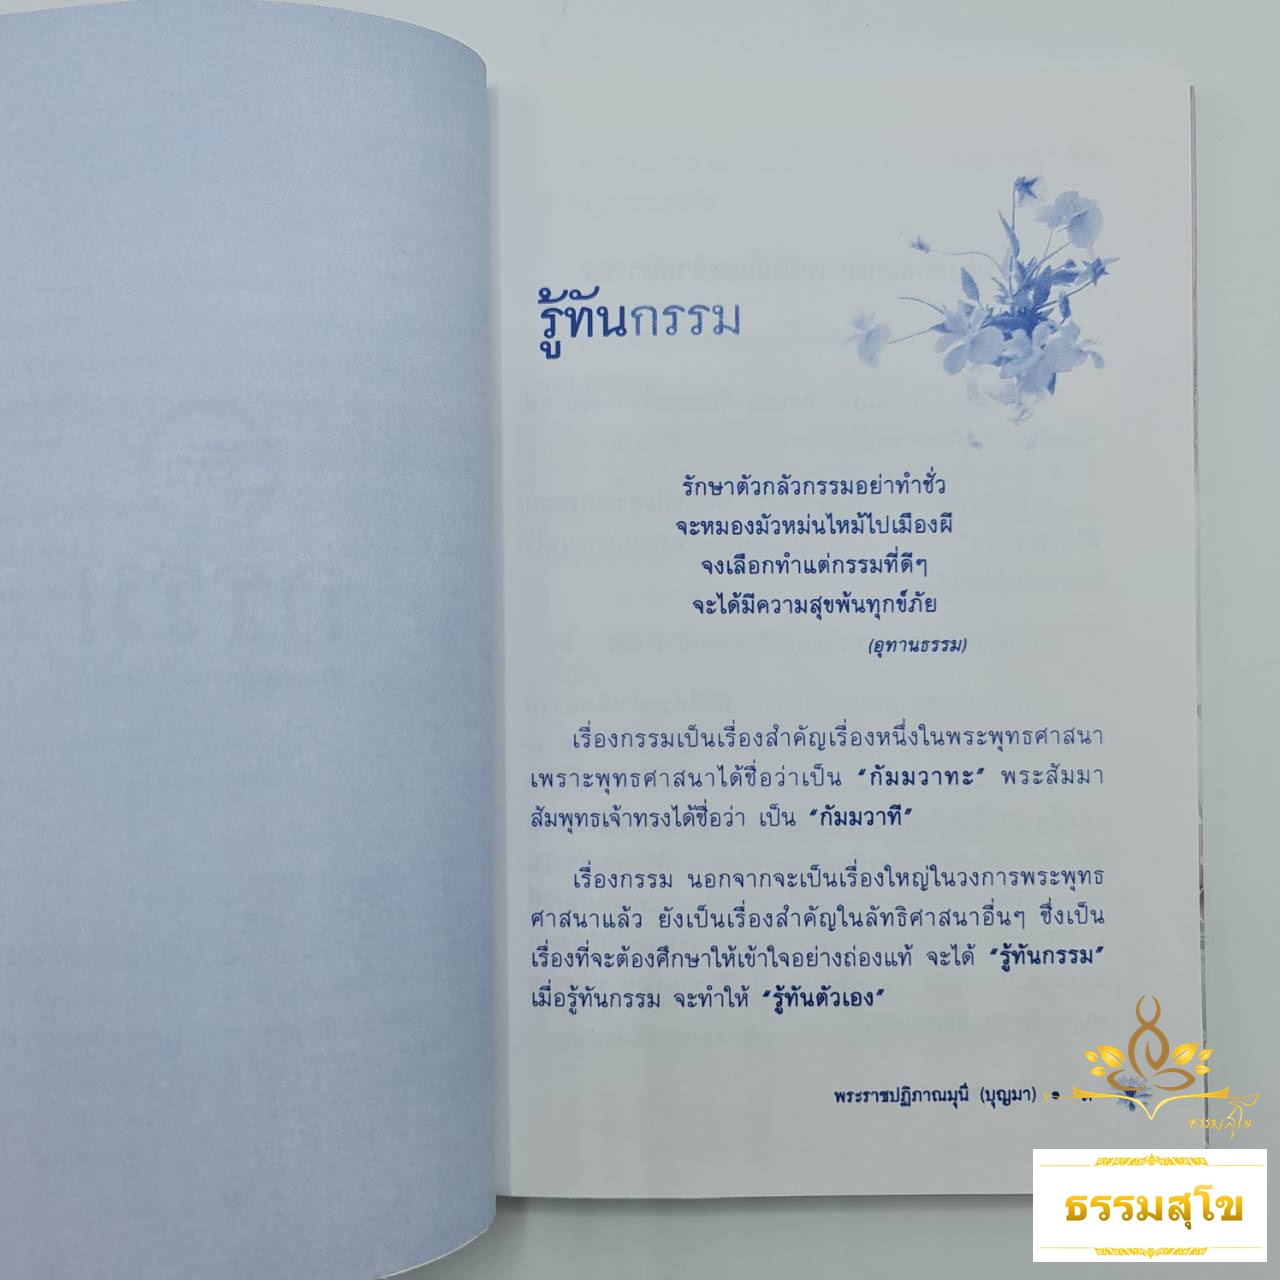 รู้ทันกรรม
รักษาตัวกลัวกรรมอย่าทำชั่ว
จะหมองมัวหม่นไหม้ไปเมืองผี
จงเลือกทำแต่กรรมที่ดีๆ
จะได้มีความสุขพ้นทุกข์ภัย
(อุทานธรรม)
เรื่องกรรมเป็นเรื่องสำคัญเรื่องหนึ่งในพระพุทธศาสนา
เพราะพุทธศาสนาได้ชื่อว่าเป็น “กัมมวาทะ” พระสัมมา
สัมพุทธเจ้าทรงได้ชื่อว่า เป็น “กัมมวาที”
เรื่องกรรม นอกจากจะเป็นเรื่องใหญ่ในวงการพระพุทธ
ศาสนาแล้ว ยังเป็นเรื่องสำคัญในลัทธิศาสนาอื่นๆ ซึ่งเป็น
เรื่องที่จะต้องศึกษาให้เข้าใจอย่างถ่องแท้ จะได้ “รู้ทันกรรม”
เมื่อรู้ทันกรรม จะทำให้ “รู้ทันตัวเอง”
พระราชปฏิภาณมุนี (บุญมา)
ธรรมสุโข
ธรรมสุโข